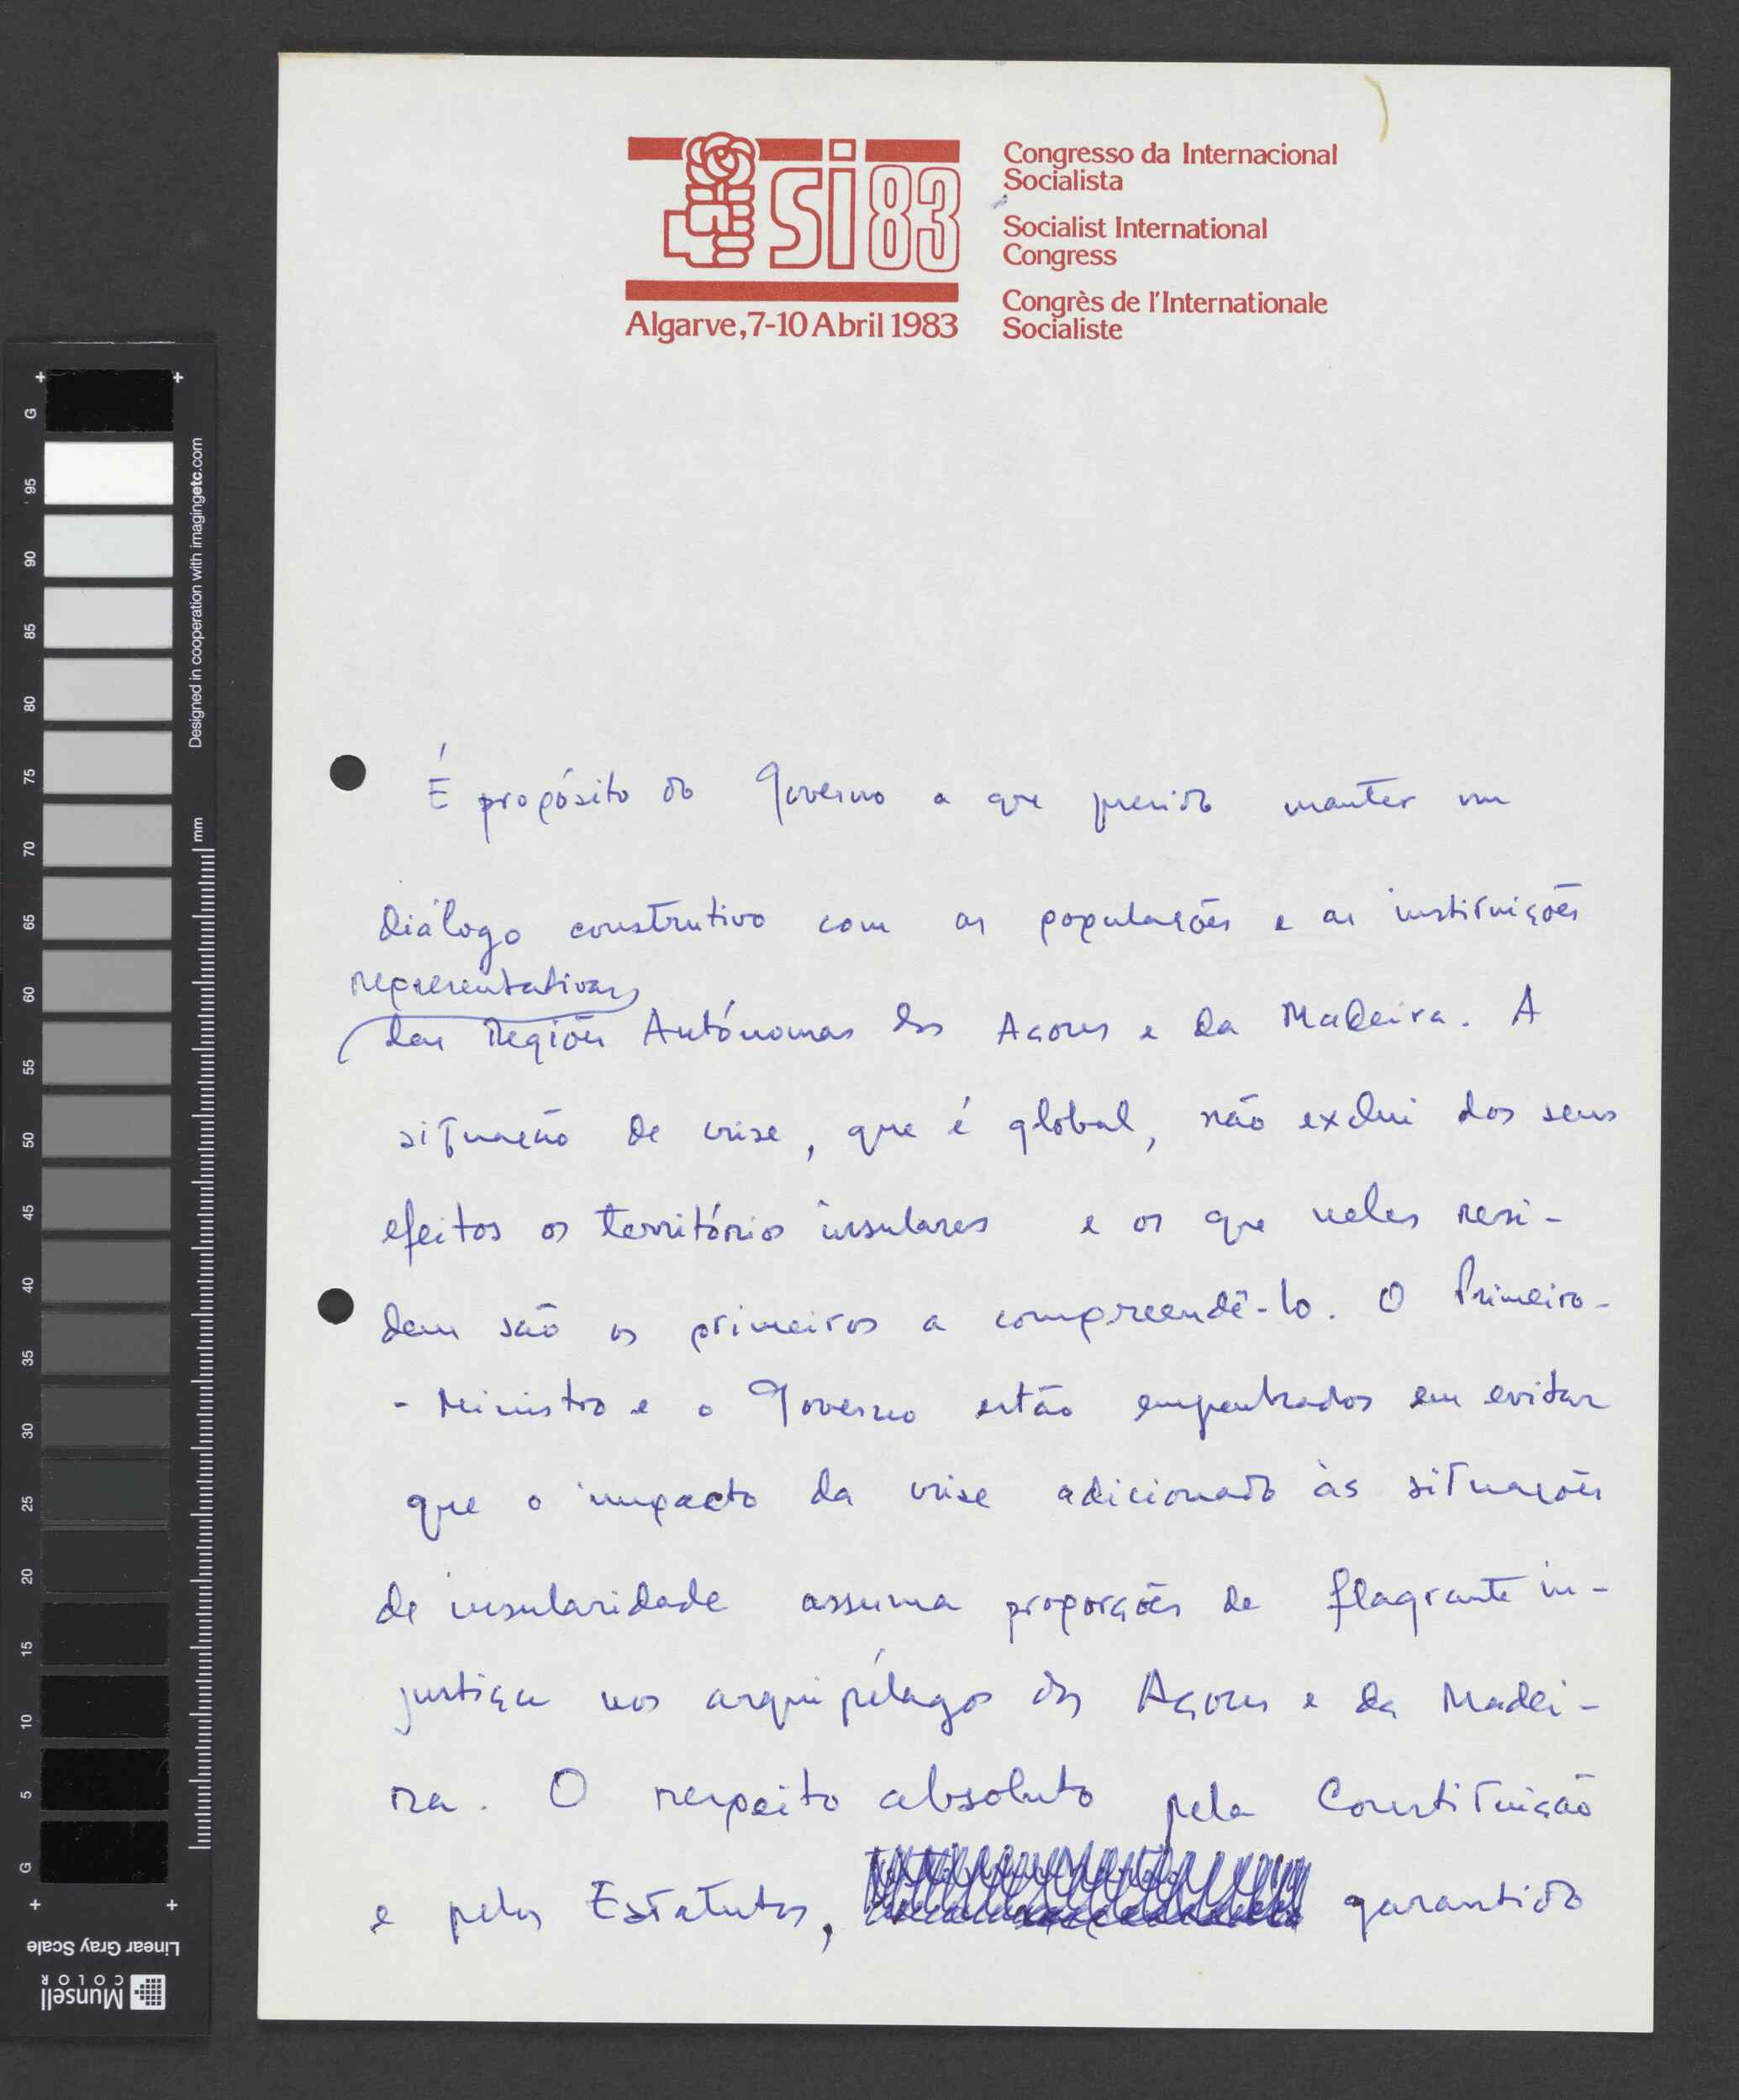 si83
Algarve, 7-10 Abril 1983
Congresso da Internacional
Socialista
Socialist International
Congress
Congrès de l'Internationale
Socialiste
É propósito do Governo a que presido manter um
diálogo construtivo com as populações e as instituições
representativas
das Regiões Autónomas dos Açores e da Madeira. A
situação de crise, que é global, não exclui dos seus
efeitos os territórios insulares e os que neles resi-
dem são os primeiros a compreendê-lo. O Primeiro-
- Ministro e o Governo estão empenhados em evitar
que o impacto da crise adicionado às situações
de insularidade assuma proporções de flagrante in-
justiça nos arquipélagos dos Açores e da Madei-
ra. O respeito absoluto pela Constituição
e pelos Estatutos, garantido
G 95 90 85 80 75 70 65 60 55 50 45 40 35 30 25 20 15 10 5 G
Designed in cooperation with imagingetc.com
mm
Linear Gray Scale
Munsell
COLOR